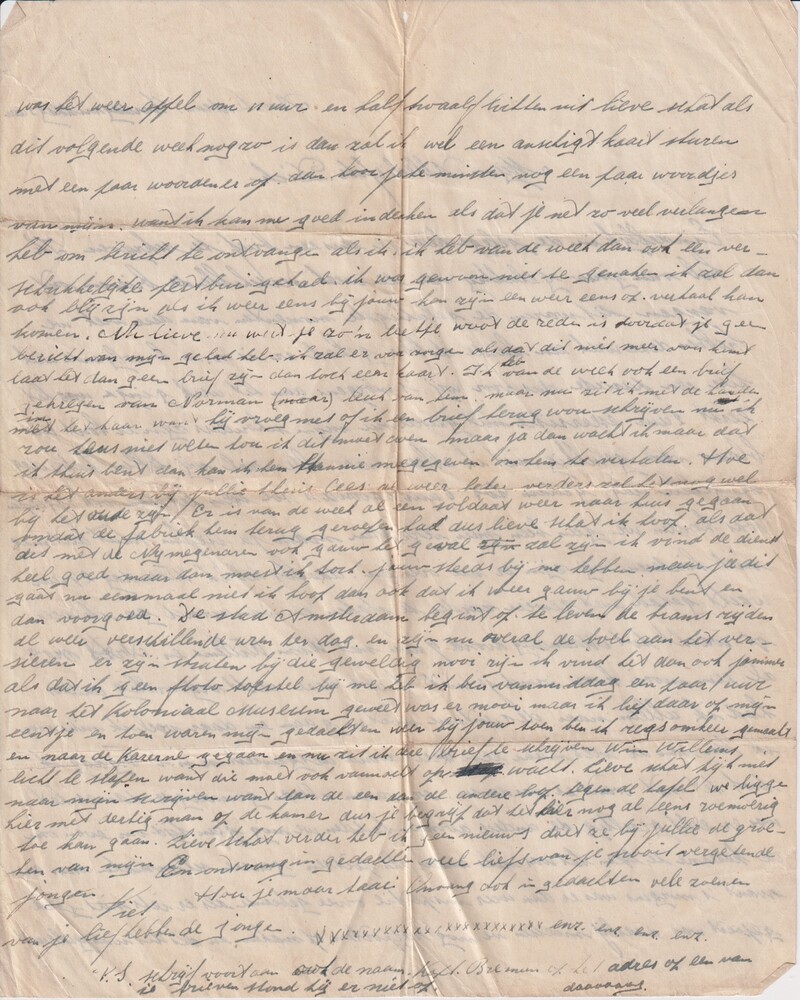 was het weer appel om 11 uur en half twaalf lichten uit lieve schat als
dit volgende week nog zo is dan zal ik wel een ansichgt kaart sturen
met een paar woorden er op. dan hoor je te minsten nog een paar woordjes
van mijn. want ik kan me goed indenken als dat je net zo veel verlangen
heb om bericht te ontvangen als ik. ik heb van de week dan ook een ver-
schrikkelijke gehad. ik was gewoon niet te genaken ik zal dan
ook blij zijn als ik weer eens bij jouw kan zijn en weer eens op verhaal kan
komen. Nu lieve nu weet je zo'n beetje wat de reden is doordat je geen
bericht van mijn gehad heb. ik zal er voor zorgen als dat dit niet meer voor komt
laat het dan geen brief zijn dan toch een kaart. Ik heb van de week ook een brief
gekregen van Norman (maar) leuk van hem. maar nu zit ik met de handen
in het haar want hij vroeg net of ik een brief terug wou schrijven nu ik
zou heus niet weten hou ik dit moet doen maar ja dan wacht ik maar dat
ik thuis bent dan kan ik hem Hannie megegeven om hem te vertalen. Hoe
is het anders bij jullie thuis Cees al weer beter verders zal het nog wel
bij het oude zijn. Er is van de week al een soldaat weer naar huis gegaan
omdat de fabriek hem terug geroepen had dus lieve schat ik hoop als dat
dit met de Nijmegenaren ook gauw het geval zal zijn ik vind de dienst
heel goed maar dan moest ik toch jouw steeds bij me hebben maar ja dit
gaat nu eenmaal niet ik hoop dan ook dat ik weer gauw bij je bent en
dan voorgoed. De stad Amsterdam begint op te leven de trams rijden
al weer verschillende uren ter dag. en zijn nu overal de boel aan het ver-
sieren er zijn straten bij die geweldig mooi zijn ik vind het dan ook jammer
als dat ik geen photo toestel bij me heb ik ben vanmiddag een paar uur
naar het Koloniaal Museum geweest was er mooi maar ik liep daar op mijn
eentje en toen waren mijn gedachten weer bij jouw toen ben ik regsomkeer gemaakt
en naar de Kazerne gegaan en nu zit ik die brief te schrijven Wim Willems
licht te slapen want die moet ook vannacht op wacht. Lieve schat kijk niet
naar mijn schrijven want dan de een dan de andere loop tegen de tafel we ligge
hier met dertig man op de kamer dus je begrijp dat het hier nog al eens roemoerig
toe kan gaan. Lieve schat verder heb ik geen nieuws doet ze bij jullie de groe-
ten van mijn En ontvang in gedachte veel liefs van je nooit vergetende
jongen Hou je maar taai Ontvang ook in gedachten vele zoenen
Piet
van je liefhebbende jonge. XxxxxxxxxxxxxxxxxxxxxxX enz. enz. enz. enz.
V.S. schrijf voortaan ook de naam Kapt. Bremen op het adres op een van
je brieven stond hij er niet op daarvang